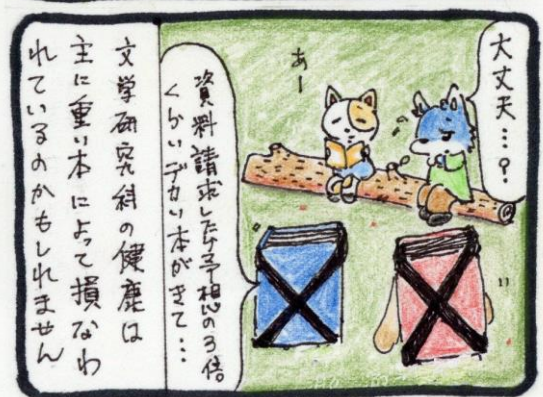 大丈夫…?
あー
資料請求したけ予想の3倍
くらいデカい本がきて…
文学研究科の健康は
主に重い本によって損なわ
れているのかもしれません